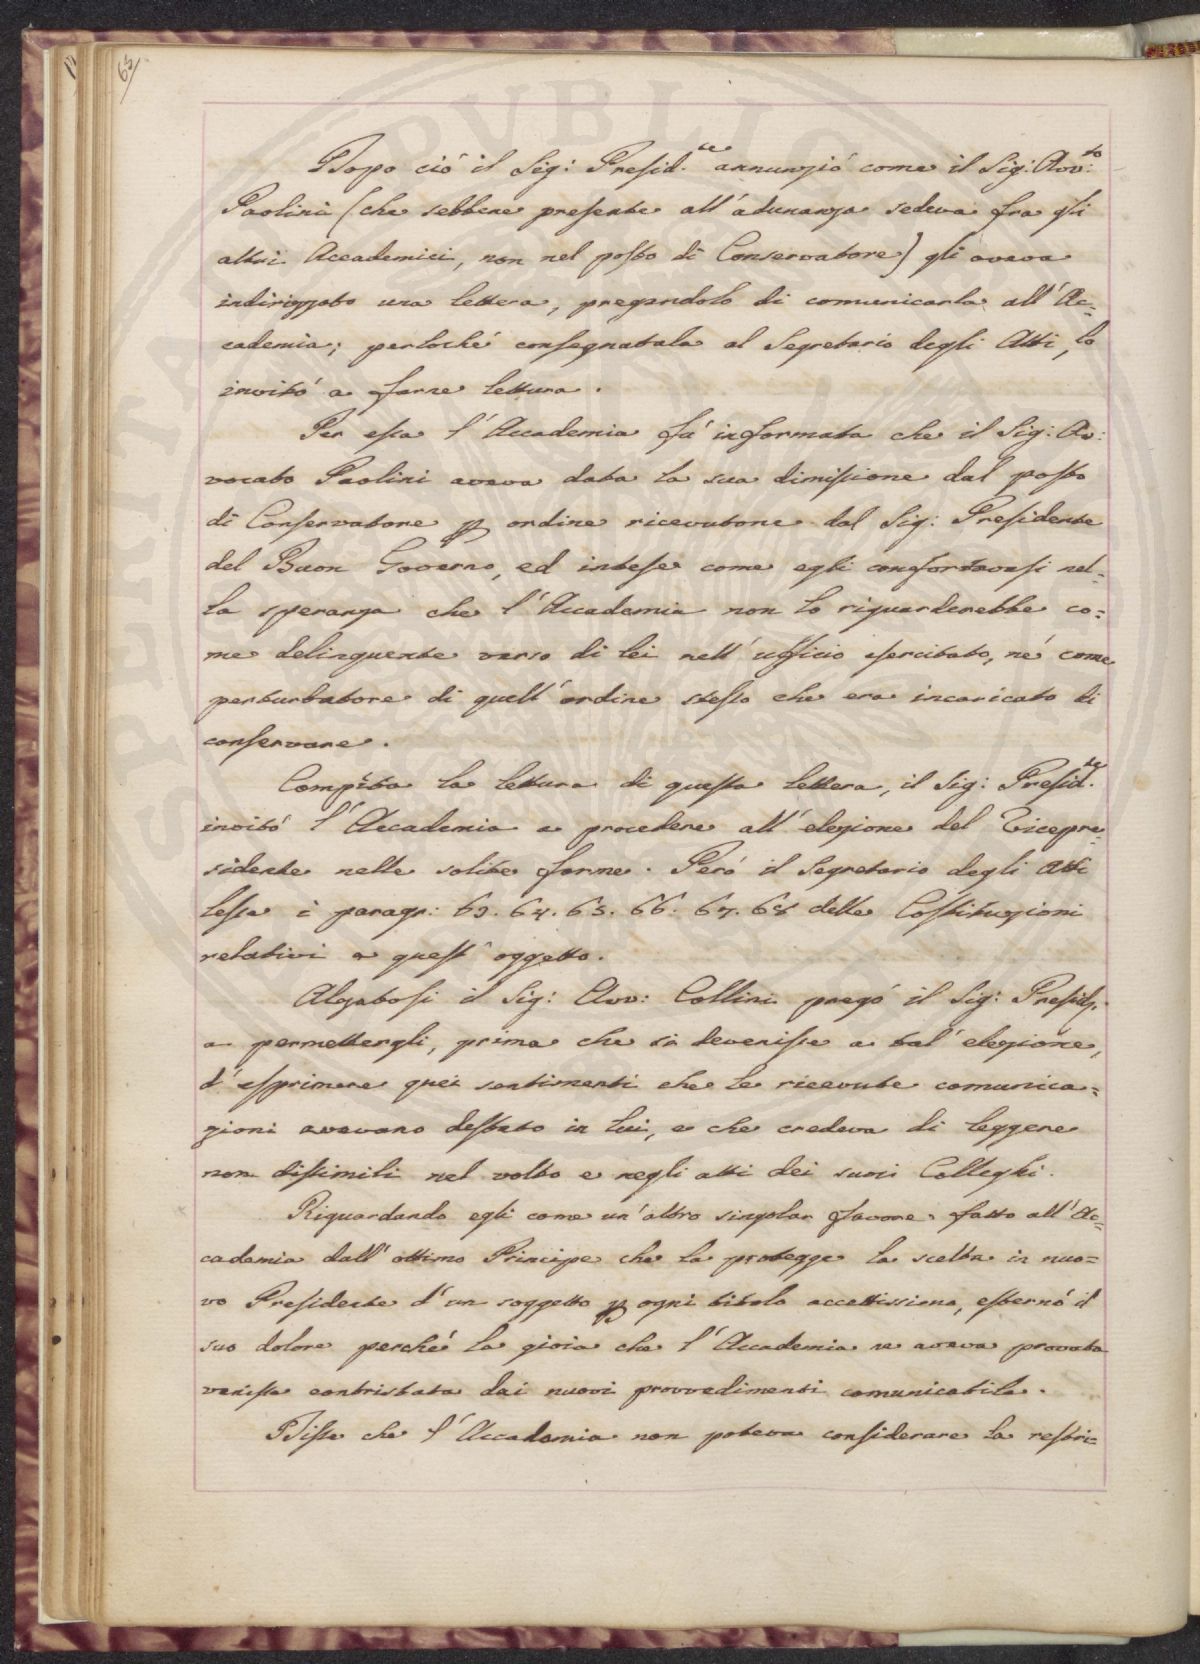 65
Dopo ciò il Sig: Presid.te annunziò come il Sig: Avv:to
Paolini (che sebbene presente all'adunanza sedeva fra gli
altri Accademici, non nel posto di Conservatore) gli aveva
indirizzato una lettera, pregandolo di comunicarla all'Ac=
cademia; perloché consegnatala al Segretario degli Atti, lo
invitò a farne lettura.
Per essa l'Accademia fù informata che il Sig: Av:
vocato Paolini aveva data la sua dimissione dal posto
di Conservatore p ordine ricevutone dal Sig: Presidente
del Buon Governo, ed intese come egli confortavasi nel=
la speranza che l'Accademia non lo riguarderebbe co=
me delinquente verso di lei nell'ufficio esercitato, né come
perturbatore di quell'ordine stesso che era incaricato di
conservare.
Compita la lettura di questa lettera, il Sig: Presid.te
invitò l'Accademia a procedere all'elezione del Vicepre=
sidente nelle solite forme. Però il Segretario degli Atti
lesse i paragr: 63. 64. 65. 66. 67. 68 delle Costituzioni
relativi a quest'oggetto.
Alzatosi il Sig: Avv: Collini pregò il Sig: Presid.
a permettergli, prima che si devenisse a tal'elezione,
d'esprimere quei sentimenti che le ricevute comunica=
zioni avevano destato in lui, e che credeva di leggere
non dissimili nel volto e negli atti dei suoi Colleghi.
Riguardando egli come un'altro singolar favore fatto all'Ac=
cademia dall'ottimo Principe che la protegge la scelta in nuo=
vo Presidente d'un soggetto p ogni titolo accettissimo, esternò il
suo dolore perché la gioia che l'Accademia ne aveva provata
venisse contristata dai nuovi provvedimenti comunicatile.
Disse che l'Accademia non poteva considerare la restri=